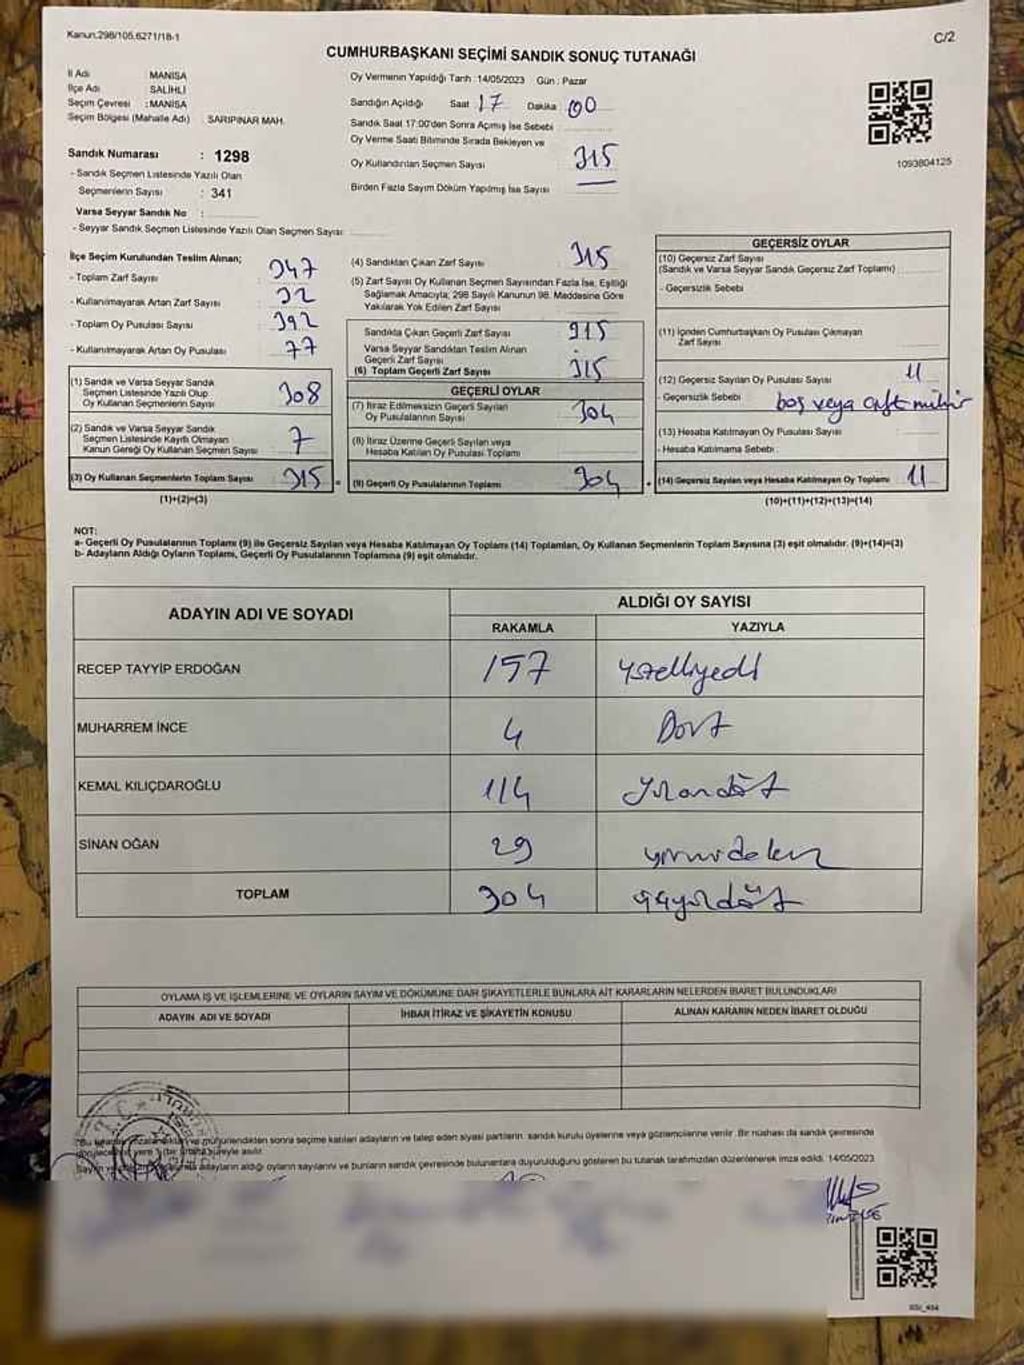 Kanun:298/105,6271/18-1
C/2
CUMHURBAŞKANI SEÇİMİ SANDIK SONUÇ TUTANAĞI
İl Adı MANİSA
İlçe Adı :SALİHLİ
Seçim Çevresi :MANİSA
Seçim Bölgesi (Mahalle Adı) : SARIPINAR MAH.
Sandık Numarası : 1298
- Sandık Seçmen Listesinde Yazılı Olan
Seçmenlerin Sayısı : 341
Varsa Seyyar Sandık No :
- Seyyar Sandık Seçmen Listesinde Yazılı Olan Seçmen Sayısı:
Oy Vermenin Yapıldığı Tarih :14/05/2023 Gün : Pazar
Sandığın Açıldığı Saat 17 Dakika 00
Sandık Saat 17:00'den Sonra Açılmış İse Sebebi
Oy Verme Saati Bitiminde Sırada Bekleyen ve
Oy Kullandırılan Seçmen Sayısı 315
Birden Fazla Sayım Döküm Yapılmış İse Sayısı —
1093804125
İlçe Seçim Kurulundan Teslim Alınan;
- Toplam Zarf Sayısı : 347
- Kullanılmayarak Artan Zarf Sayısı : 32
- Toplam Oy Pusulası Sayısı : 392
- Kullanılmayarak Artan Oy Pusulası : 77
(1) Sandık ve Varsa Seyyar Sandık
Seçmen Listesinde Yazılı Olup
Oy Kullanan Seçmenlerin Sayısı 308
(2) Sandık ve Varsa Seyyar Sandık
Seçmen Listesinde Kayıtlı Olmayan
Kanun Gereği Oy Kullanan Seçmen Sayısı 7
(3) Oy Kullanan Seçmenlerin Toplam Sayısı 315
(1)+(2)=(3)
(4) Sandıktan Çıkan Zarf Sayısı : 315
(5) Zarf Sayısı Oy Kullanan Seçmen Sayısından Fazla İse, Eşitliği
Sağlamak Amacıyla; 298 Sayılı Kanunun 98. Maddesine Göre
Yakılarak Yok Edilen Zarf Sayısı
Sandıkta Çıkan Geçerli Zarf Sayısı 315
Varsa Seyyar Sandıktan Teslim Alınan
Geçerli Zarf Sayısı
(6) Toplam Geçerli Zarf Sayısı 315
GEÇERLİ OYLAR
(7) İtiraz Edilmeksizin Geçerli Sayılan
Oy Pusulasının Sayısı 304
(8) İtiraz Üzerine Geçerli Sayılan veya
Hesaba Katılan Oy Pusulası Toplamı
(9) Geçerli Oy Pusulalarının Toplamı 304
GEÇERSİZ OYLAR
(10) Geçersiz Zarf Sayısı
(Sandık ve Varsa Seyyar Sandık Geçersiz Zarf Toplamı)
- Geçersizlik Sebebi
(11) İçinden Cumhurbaşkanı Oy Pusulası Çıkmayan
Zarf Sayısı
(12) Geçersiz Sayılan Oy Pusulası Sayısı 11
- Geçersizlik Sebebi boş veya çift mühür
(13) Hesaba Katılmayan Oy Pusulası Sayısı
- Hesaba Katılmama Sebebi :
(14) Geçersiz Sayılan veya Hesaba Katılmayan Oy Toplamı 11
(10)+(11)+(12)+(13)=(14)
NOT:
a- Geçerli Oy Pusulalarının Toplamı (9) ile Geçersiz Sayılan veya Hesaba Katılmayan Oy Toplamı (14) Toplamları, Oy Kullanan Seçmenlerin Toplam Sayısına (3) eşit olmalıdır. (9)+(14)=(3)
b- Adayların Aldığı Oyların Toplamı, Geçerli Oy Pusulalarının Toplamına (9) eşit olmalıdır.
ADAYIN ADI VE SOYADI ALDIĞI OY SAYISI
RAKAMLA YAZIYLA
RECEP TAYYİP ERDOĞAN 157 yüzelliyedi
MUHARREM İNCE 4 Dört
KEMAL KILIÇDAROĞLU 114 yüzondört
SİNAN OĞAN 29 yirmidokuz
TOPLAM 304 üçyüzdört
OYLAMA İŞ VE İŞLEMLERİNE VE OYLARIN SAYIM VE DÖKÜMÜNE DAİR ŞİKAYETLERLE BUNLARA AİT KARARLARIN NELERDEN İBARET BULUNDUKLARI
ADAYIN ADI VE SOYADI İHBAR İTİRAZ VE ŞİKAYETİN KONUSU ALINAN KARARIN NEDEN İBARET OLDUĞU
mühürlendikten sonra seçime katılan adayların ve talep eden siyasi partilerin sandık kurulu üyelerine veya gözlemcilerine verilir. Bir nüshası da sandık çevresinde
adayların aldığı oyların sayılarını ve bunların sandık çevresinde bulunanlara duyurulduğunu gösteren bu tutanak tarafımızdan düzenlenerek imza edildi. 14/05/2023